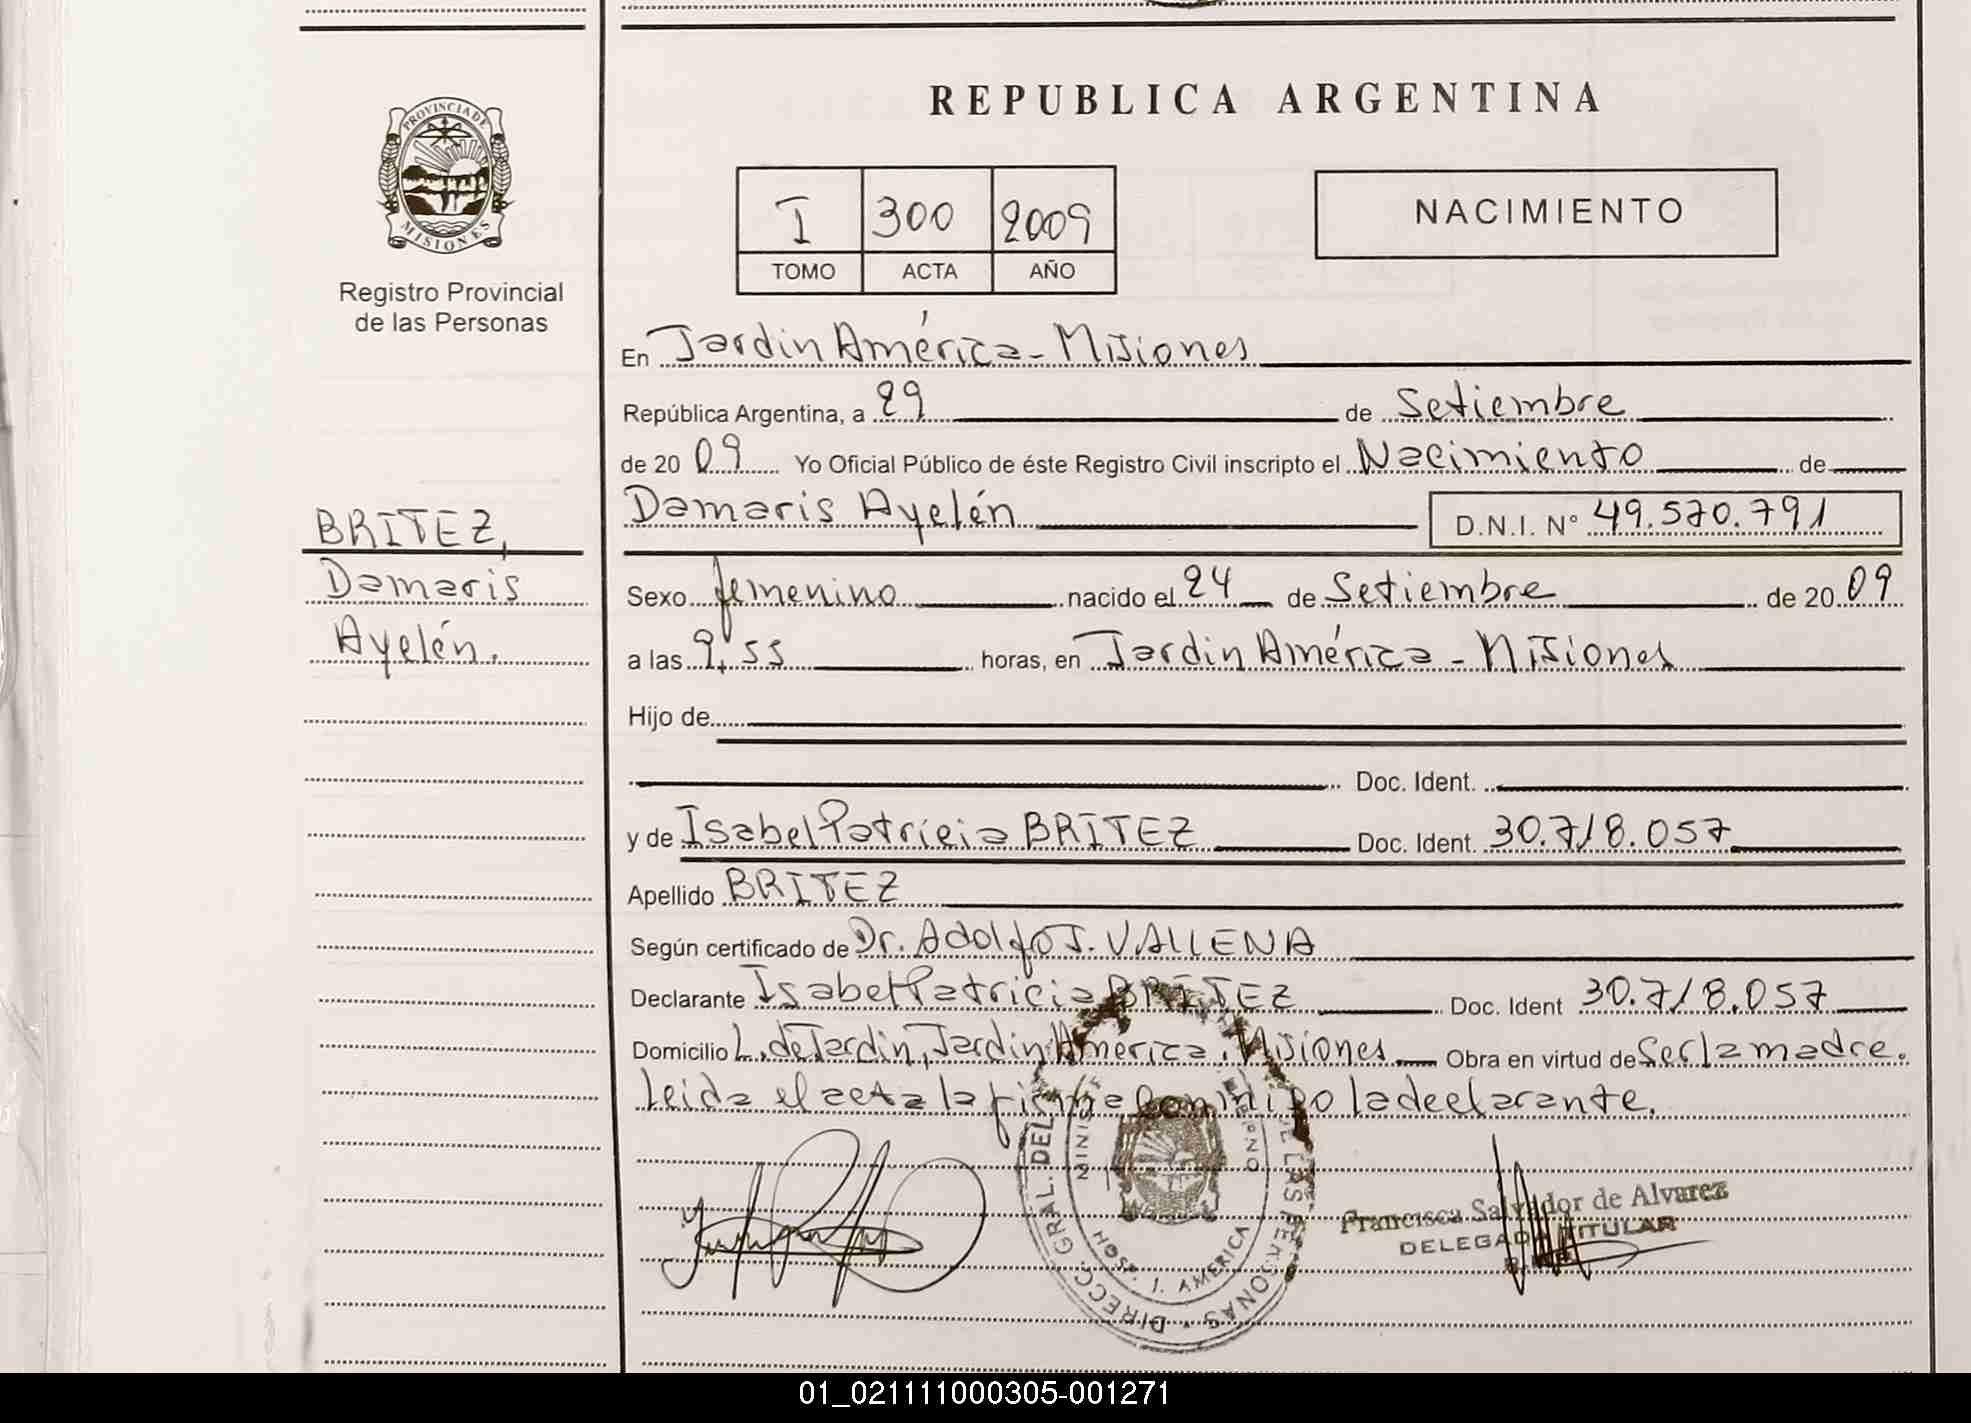 REPUBLICA ARGENTINA
PROVINCIA DE
MISIONES
Registro Provincial
de las Personas
I 300 2009
TOMO ACTA AÑO
NACIMIENTO
En Jardin América - Misiones
República Argentina, a 29 de Setiembre
de 20 09 Yo Oficial Público de éste Registro Civil inscripto el Nacimiento de
Damaris Ayelén D.N.I. N° 49.570.791
BRITEZ,
Damaris
Ayelén.
Sexo femenino nacido el 24 de Setiembre de 20 09
a las 9,55 horas, en Jardin América - Misiones
Hijo de
Doc. Ident.
y de Isabel Patricia BRITEZ Doc. Ident. 30.718.057
Apellido BRITEZ
Según certificado de Dr. Adolfo J. VALLENA
Declarante Isabel Patricia BRITEZ Doc. Ident 30.718.057
Domicilio L. de Jardin, Jardin América. Misiones Obra en virtud de Ser la madre.
Leida el acta la firma conmigo la declarante.
DIRECC. GRAL. DEL DE LAS PERSONAS
J. AMERICA
Francisca Salvador de Alvarez
DELEGADA TITULAR
01_021111000305-001271